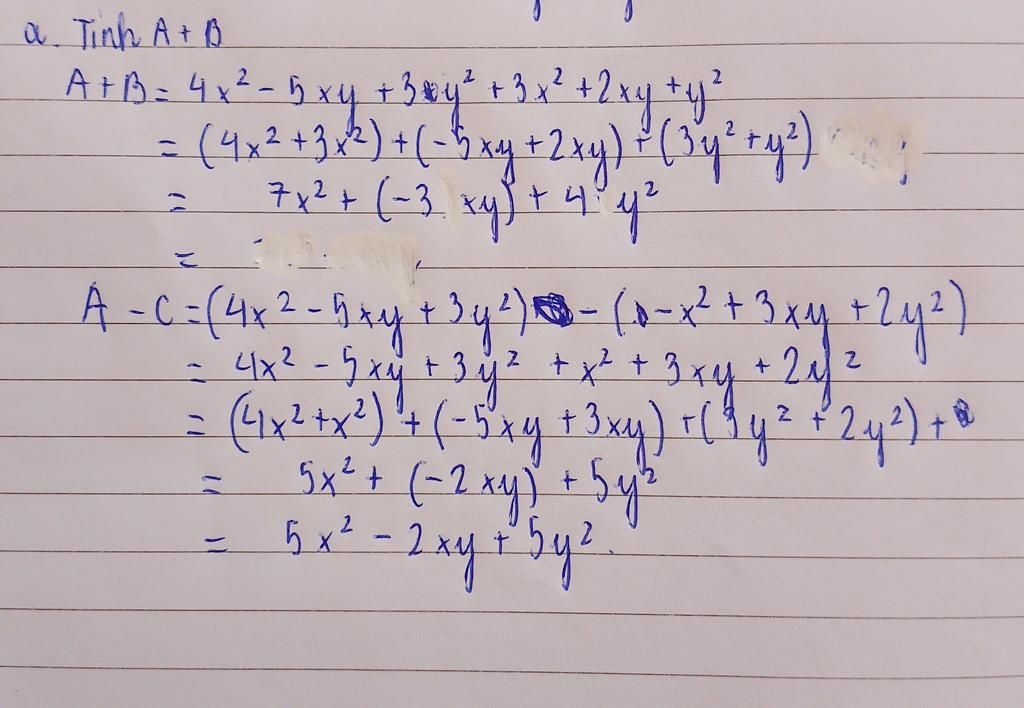 a. Tính A + B
A + B = 4x² - 5xy + 3y² + 3x² + 2xy + y²
= (4x² + 3x²) + (-5xy + 2xy) + (3y² + y²)
= 7x² + (-3xy) + 4y²
=
A - C = (4x² - 5xy + 3y²) - (-x² + 3xy + 2y²)
= 4x² - 5xy + 3y² + x² + 3xy + 2y²
= (4x² + x²) + (-5xy + 3xy) + (3y² + 2y²) +
= 5x² + (-2xy) + 5y²
= 5x² - 2xy + 5y².